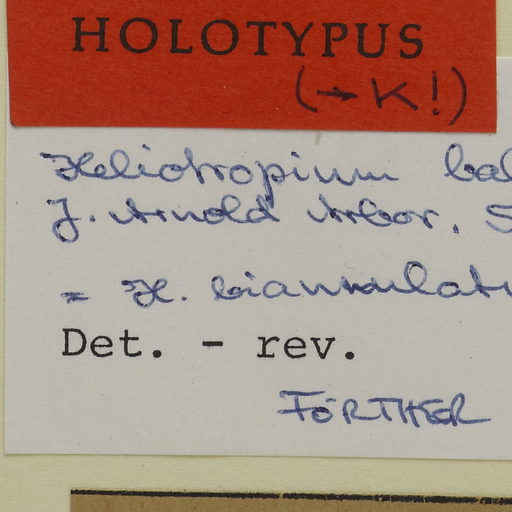 HOLOTYPUS
(→ K!)
Heliotropium bal
J. Arnold Arbor. S
= H. biannulat
Det. - rev.
FÖRTHER